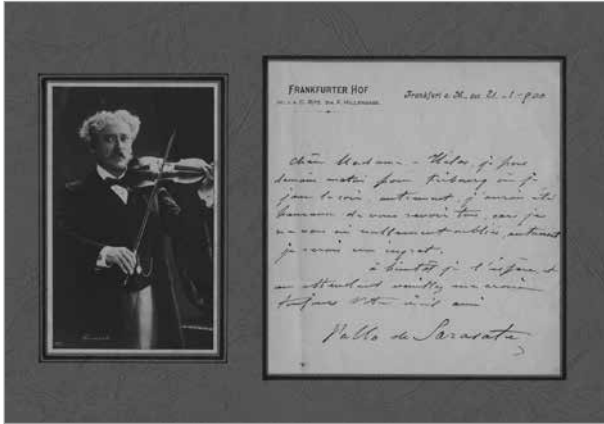 FRANKFURTER HOF
Frankfurt a. M. den 21 - 1 - 900
Chère Madame - Hélas, je pars
demain matin pour Fribourg où je
joue le soir autrement, j'aurais été
heureux de vous revoir tous, car je
ne vous ai nullement oubliés, autrement
je serais un ingrat.
à bientôt je l'espère, et
en attendant veuillez me croire
toujours votre vieil ami
Pablo de Sarasate